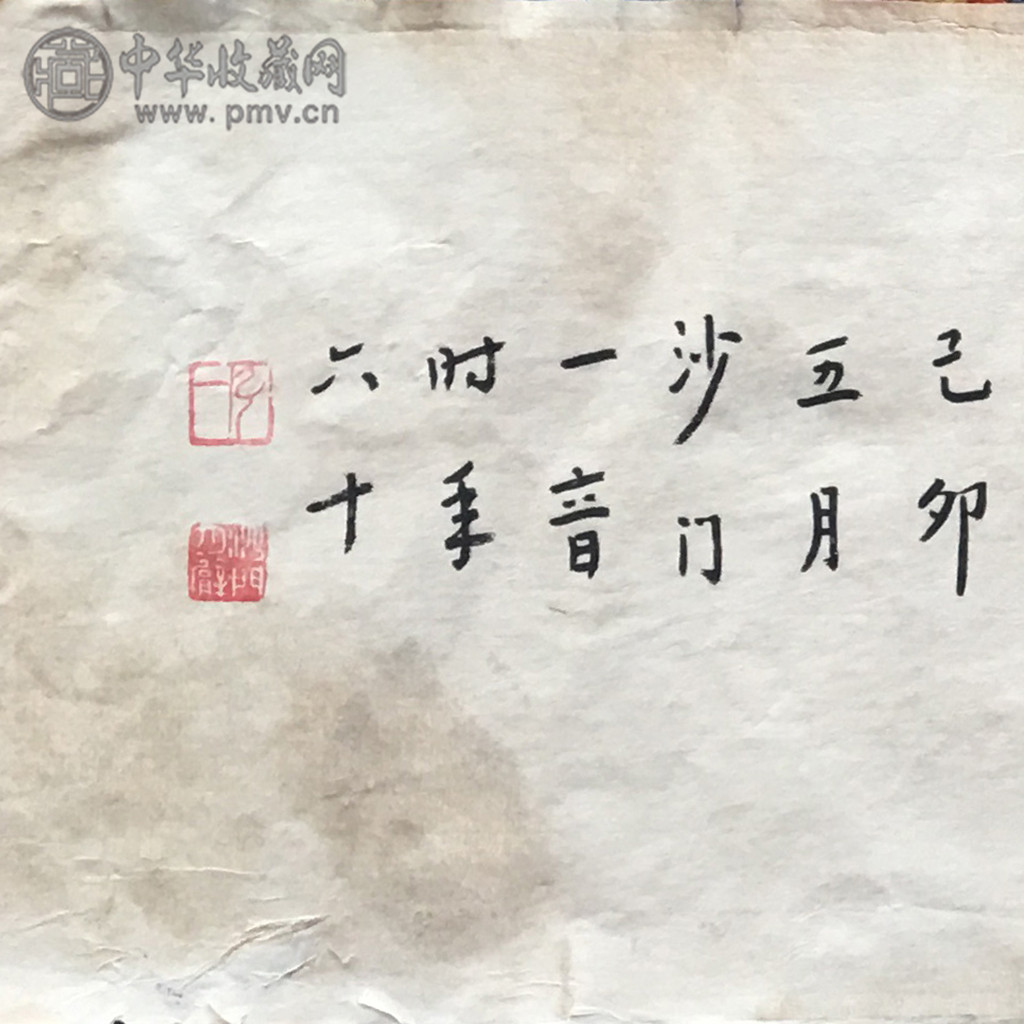 中华收藏网
www.pmv.cn
己卯
五月
沙门
一音
时年
六十